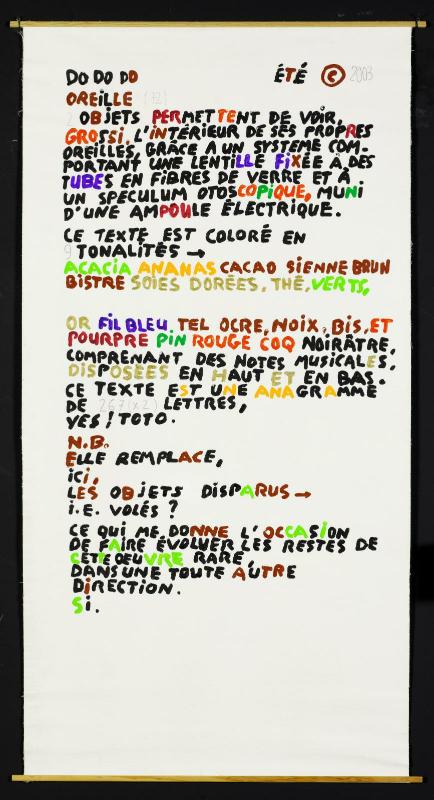 DO DO DO ÉTÉ © 2003
OREILLE (12)
2 OBJETS PERMETTENT DE VOIR,
GROSSI, L'INTÉRIEUR DE SES PROPRES
OREILLES, GRÂCE A UN SYSTEME COM-
PORTANT UNE LENTILLE FIXÉE À DES
TUBES EN FIBRES DE VERRE ET À
UN SPECULUM OTOSCOPIQUE, MUNI
D'UNE AMPOULE ÉLECTRIQUE.
CE TEXTE EST COLORÉ EN
9 TONALITÉS →
ACACIA ANANAS CACAO SIENNE BRUN
BISTRE SOIES DORÉES, THÉ, VERTS,
OR FIL BLEU, TEL OCRE, NOIX, BIS, ET
POURPRE PIN ROUGE COQ NOIRÂTRE,
COMPRENANT DES NOTES MUSICALES,
DISPOSÉES EN HAUT ET EN BAS.
CE TEXTE EST UNE ANAGRAMME
DE 267 (X2) LETTRES,
YES ! TOTO.
N.B.
ELLE REMPLACE,
ICI,
LES OBJETS DISPARUS →
I.E. VOLÉS ?
CE QUI ME DONNE L'OCCASION
DE FAIRE ÉVOLUER LES RESTES DE
CETTE OEUVRE RARE,
DANS UNE TOUTE AUTRE
DIRECTION.
SI.